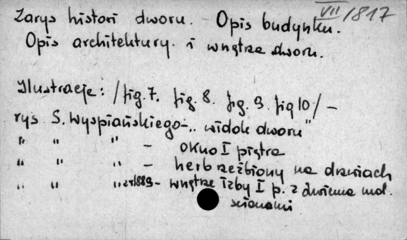 VII/817
Zarys histori dworu. Opis budynku.
Opis architektury i wnętrza dworu.
Ilustracje: /fig. 7. fig. 8. fig. 9. fig 10/ –
rys S. Wyspiańskiego – „widok dworu"
" " " – okno I piętra
" " " – herb rzeźbiony na drzwiach
" " " z r 1889 – wnętrze izby I p. z dwiema mal.
scianami